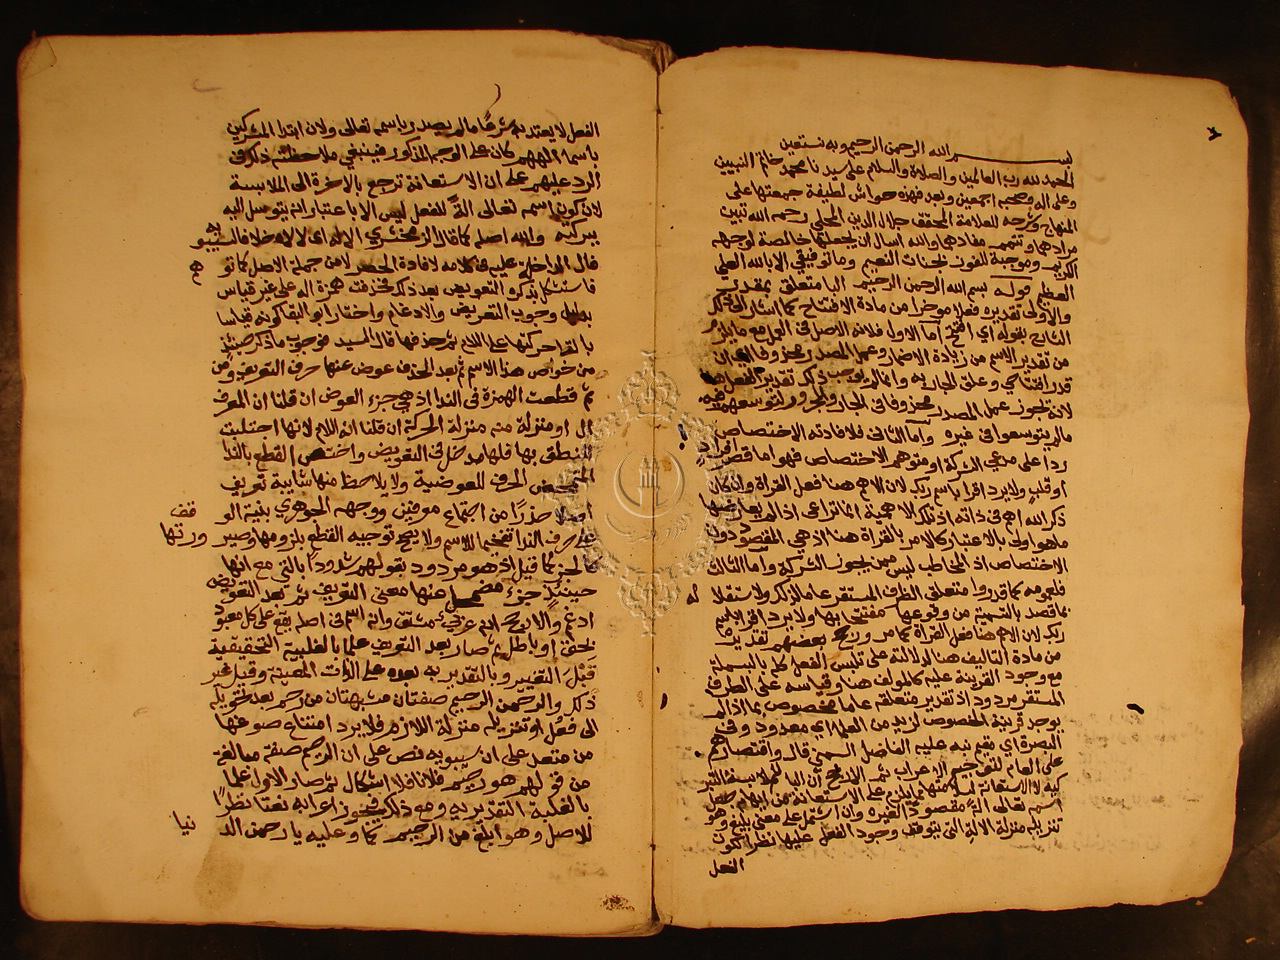 بسم الله الرحمن الرحيم وبه نستعين
الحمد لله رب العالمين والصلاة والسلام على سيدنا محمد خاتم النبيين
وعلى اله وصحبه اجمعين وبعد فهذه حواش لطيفة جمعتها على
المنهاج وشرحه للعلامة المحقق جلال الدين المحلي رحمه الله تبين
مرادها وتتمم مفادها والله اسال ان يجعلها خالصة لوجهه
الكريم وموجبة للفوز بجنات النعيم وما توفيقي الا بالله العلي
العظيم قوله بسم الله الرحمن الرحيم البا متعلق بمقدر
والاولى تقديره فعلا موخرا من مادة الافتتاح كما اشار الى ذلك
الشارح بقوله اي افتتح اما الاول فلانه الاصل في العمل مع ما يلزم
من تقدير الاسم من زيادة الاضمار وعمل المصدر محذوفا ان
قدر افتتاحي وعلق الجار به وانما لم يوجب ذلك تقدير الفعل
لانه تجوز عمل المصدر محذوفا في الجار والمجرور لتوسعهم فيهما
مالم يتوسعوا في غيره واما الثاني فلافادته الاختصاص
ردا على مدعي الشركة او متوهم الاختصاص فهو اما قصر افراد
او قلب ولا يرد اقرا باسم ربك لان الاهم هنا فعل القراة وان كان
ذكر الله اهم في ذاته اذ تلك الاهمية انما تراعى اذا لم يعارضها
ما هو اولى بالاعتبار كالامر بالقراة هنا اذ هي المقصود دون
الاختصاص اذ المخاطب ليس ممن يجوز الشركة واما الثالث
فلعمومه كما قدروا متعلق الظرف المستقر عاما لذلك ولاستقلا له
بما قصد بالتسمية من وقوعها مفتتحا بها ولا يرد اقرا باسم
ربك لان الاهم هنا فعل القراة كما مر ورجح بعضهم تقديره
من مادة التاليف هنا لدلالته على تلبس الفعل كله بالبسملة
مع وجود القرينة عليه كالمولف هنا وقياسه على الظرف
المستقر مردود اذ تقدير متعلقه عاما مخصوص بما اذا لم
يوجد قرينة الخصوص
على العام
كون اسم تعالى الة مقصودا لغيره وان اشتمل على معنى بليغ وهو
تنزيله منزلة الالة التي يتوقف وجود الفعل عليها نظرا لكون
الفعل
الفعل لا يعتد به شرعا مالم يصدر باسمه تعالى ولان ابتدا المشركين
باسما الهتهم كان على الوجه المذكور فينبغي ملاحظته ذلك في
الرد عليهم على ان الاستعانة ترجع بالاخرة الى الملابسة
لان كون اسمه تعالى الة للفعل ليس الا باعتبار انه يتوسل اليه
ببركته والله اصله كما قال الزمخشري الاله اي لا لاه خلافا لسيبويه
قال الداخلة عليه في كلامه لافادة الحصر لا من جملة الاصل كما توهم
فاستشكل بذكره التعويض بعد ذلك فحذفت همزة اله على غير قياس
بدليل وجوب التعويض والادغام واختار ابو البقا كونه قياسا
بالقا حركتها على اللام ثم حذفها قال السيد فوجوب ما ذكر حينئذ
من خواص هذا الاسم ثم بعد الحذف عوض عنها حرف التعريف ومن
ثم قطعت الهمزة في الندا اذ هي جزء العوض ان قلنا ان المعرف
ال او منزلة منه منزلة الحركة ان قلنا انه اللام لانها اجتلبت
للنطق بها فلها مدخل في التعويض واختص القطع بالندا
لتمحض الحرف للعوضية ولا يلاحظ منها شايبة تعريف
اصلا حذرا من اجتماع معرفين ووجهه الجوهري بنية الوقف
على حرف الندا تفخيما للاسم ولا يصح توجيه القطع بلزومها وصيرورتها
كالجزء كما قيل اذ هو مردود بقولهم شذوذا يا التي مع انها
حينئذ جزء مضمحل عنها معنى التعريف ثم بعد التعويض
ادغم والارجح انه عربي مشتق وانه اسم في اصله يقع على كل معبود
بحق او باطل ثم صار بعد التعريف علما بالغلبة التحقيقية
قبل التغيير وبالتقديرية بعده على الذات المعينة وقيل غير
ذلك والرحمن الرحيم صفتان مشبهتان من رحم بعد تحويله
الى فعل او تنزيله منزلة اللازم فلا يرد امتناع صوغها
من متعد على ان سيبويه نص على ان الرحيم صفة مبالغة
من في قولهم هو رحيم فلانا فلا اشكال ثم صار الاول علما
بالغلبة التقديرية ومع ذلك يجوز اعرابه نعتا نظرا
للاصل وهو ابلغ من الرحيم كما وعليه يا رحمن الدنيا